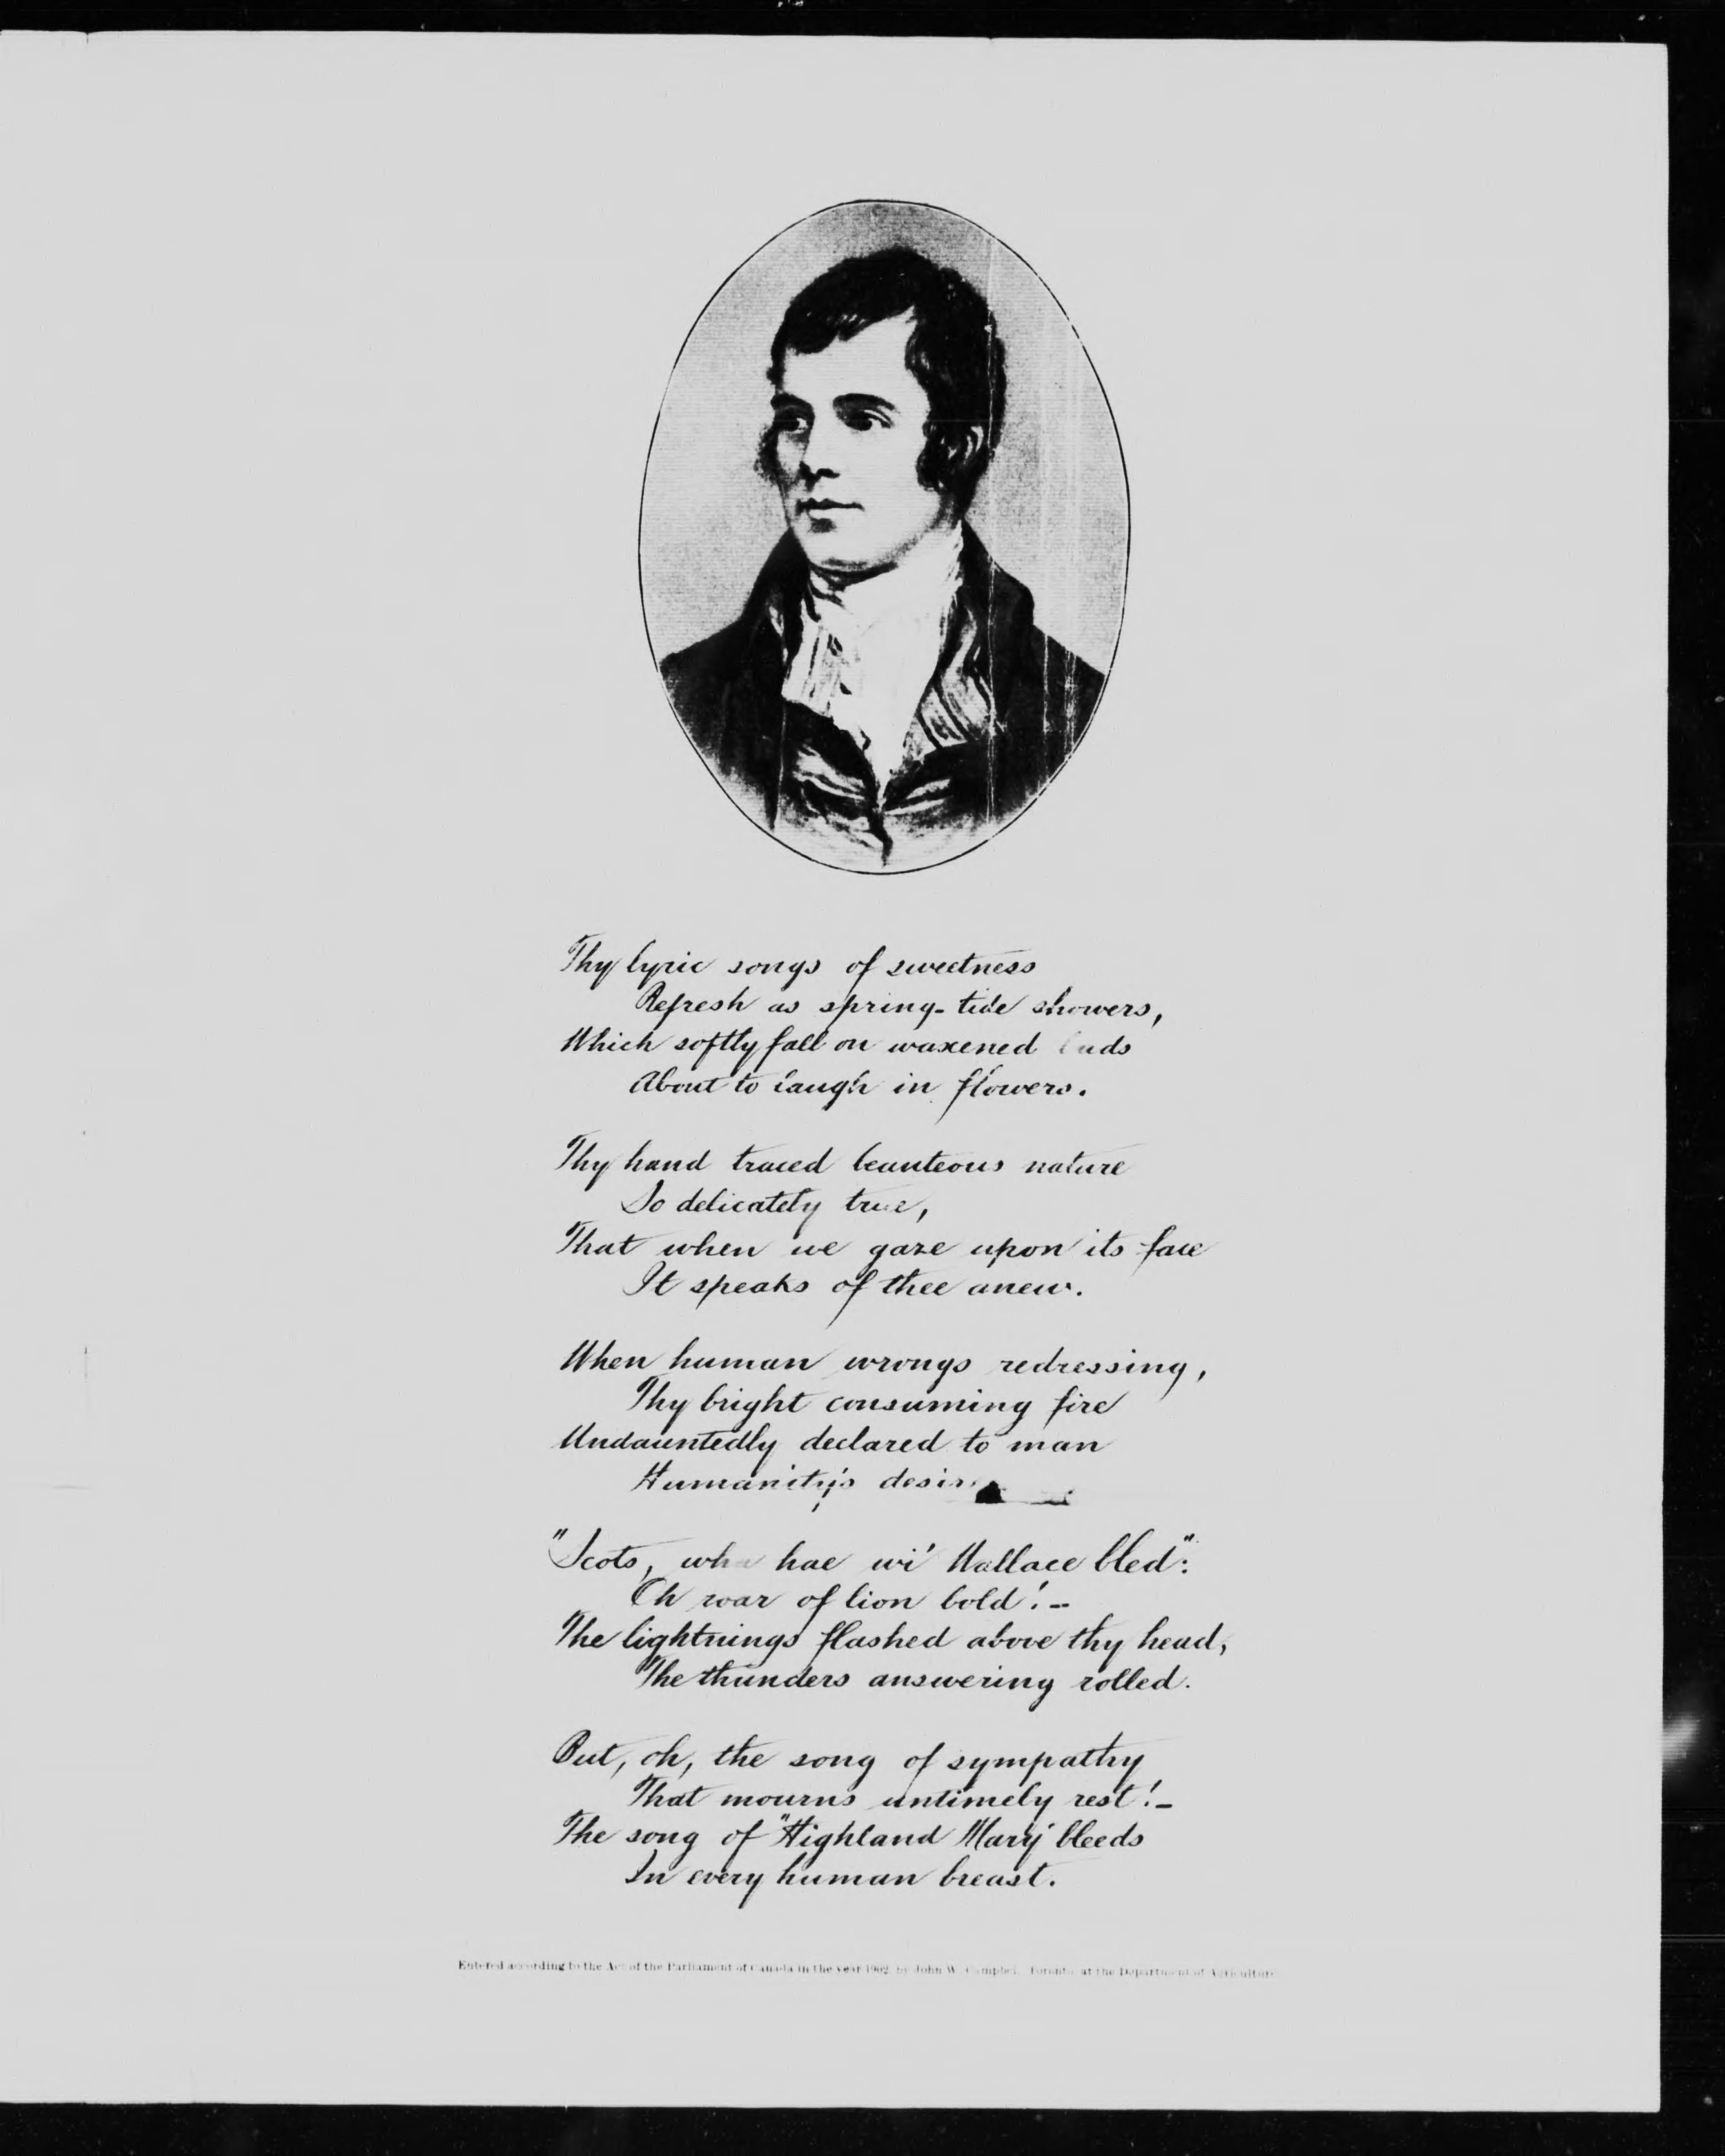 Thy lyric songs of sweetness
Refresh as spring-tide showers,
Which softly fall on waxened buds
About to laugh in flowers.
Thy hand traced beauteous nature
So delicately true,
That when we gaze upon its face
It speaks of thee anew.
When human wrongs redressing,
Thy bright consuming fire
Undauntedly declared to man
Humanity's desire
"Scots, wha hae wi' Wallace bled":
Oh roar of lion bold! –
The lightnings flashed above thy head,
The thunders answering rolled.
But, oh, the song of sympathy
That mourns untimely rest! –
The song of "Highland Mary" bleeds
In every human breast.
Entered according to the Act of the Parliament of Canada in the year 1902, by John W. Campbell, Toronto, at the Department of Agriculture.